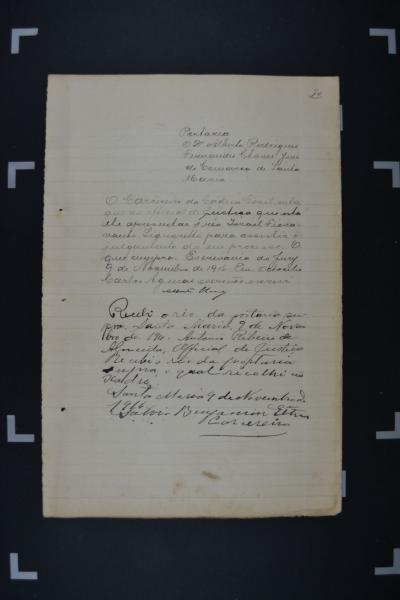 Portaria
O Dr Alberto Rodrigues
Fernandes Chaves Juiz
de Comarca de Santa
Maria
O Carcereiro da Cadeia Civil entre
gue ao official de justiça que esta
lhe apresentar o réo Israel
para assistir o
julgamento de seu processo. O
que cumpra. Escrivania do Jury
9 de Novembro de 1916. Eu,
Carlos escrivão o escrevi
Recebi o réo, da portaria su-
pra. Santa Maria, 9 de Novem
bro de 1916. Antonio Ribeiro de
Almeida, Official de Justiça
Recebi o réo da portaria
supra, o qual recolhi no
Santa Maria 9 de Novembro de
1916
Benjamin
Carcereiro